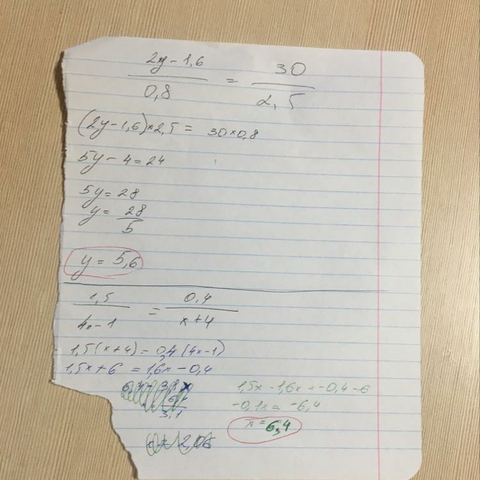 2y-1,6 / 0,8 = 30 / 2,5
(2y-1,6)×2,5 = 30×0,8
5y-4=24
5y=28
y= 28 / 5
y = 5,6
1,5 / 4x-1 = 0,4 / x+4
1,5(x+4)=0,4(4x-1)
1,5x+6 = 1,6x-0,4
1,5x-1,6x=-0,4-6
-0,1x= -6,4
x=6,4